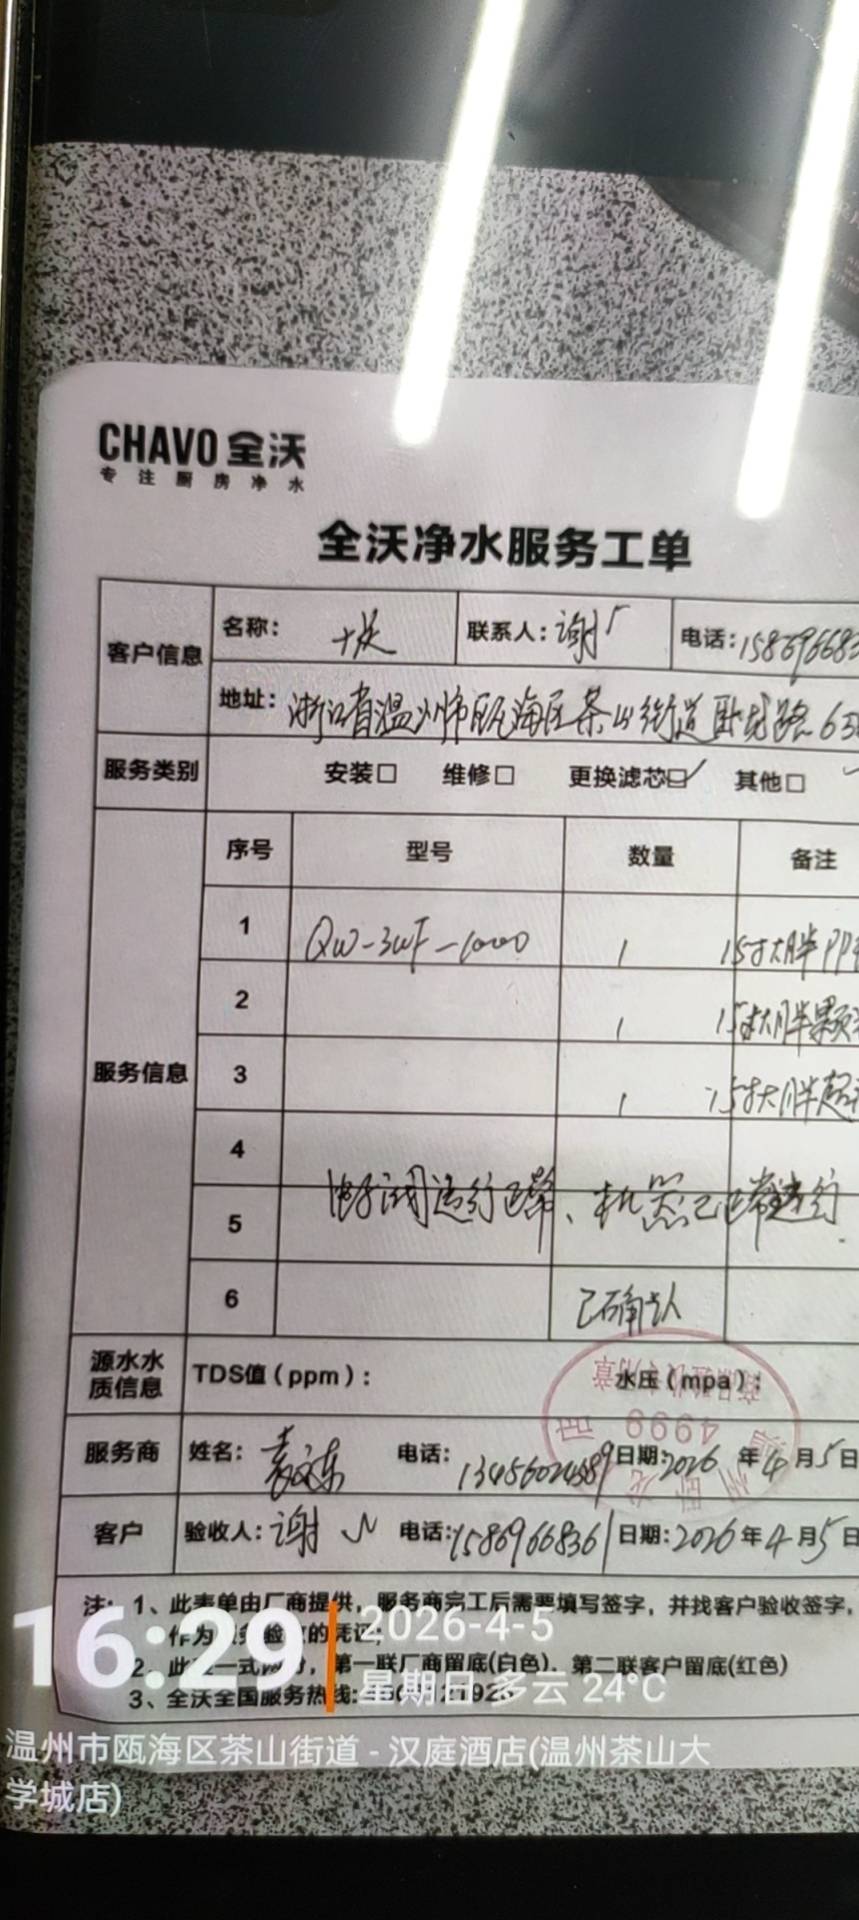 CHAVO 全沃
专注厨房净水
全沃净水服务工单
客户信息 名称： 联系人：谢 电话：158696683
地址：浙江省温州市瓯海区茶山街道卧龙路63
服务类别 安装□ 维修□ 更换滤芯☑ 其他□
服务信息 序号 型号 数量 备注
1 QW-3WF-1000 1 15寸大胖PP
2 1 15寸大胖颗
3 1 15寸大胖超
4
电子阀运行正常、机器已正常运行
5
6 已确认
源水水质信息 TDS值（ppm）： 水压（mpa）：
服务商 姓名： 电话：13456024589 日期：2026年4月5日
客户 验收人：谢 电话：15869668361 日期：2026年4月5日
4999
注：1、此表单由厂商提供，服务商完工后需要填写签字，并找客户验收签字，
作为服务验收的凭证；
2、此表一式两份，第一联厂商留底(白色)，第二联客户留底(红色)
3、全沃全国服务热线：
16:29
2026-4-5
星期日 多云 24°C
温州市瓯海区茶山街道 - 汉庭酒店(温州茶山大
学城店)